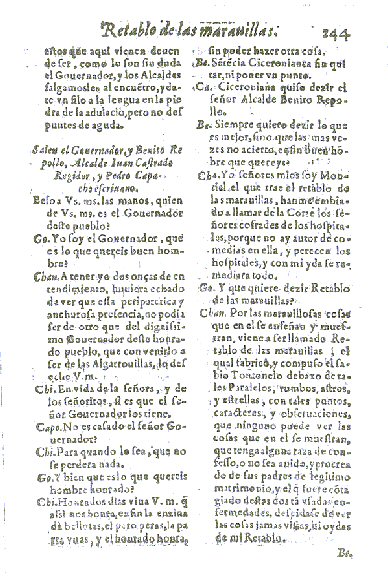 Retablo de las marauillas. 244
estos que aqui vienen deuen
de ser, como lo son sin duda
el Gouernador, y los Alcaldes
salgamosles al encuẽtro, y da-
te vn filo a la lengua en la pie
dra de la adulaciõ, pero no des
puntes de aguda.
Salen el Gouernador, y Benito Re
pollo, Alcalde Iuan Castrado
Regidor, y Pedro Capa-
cho escriuano.
Beso a Vs. ms. las manos, quien
de Vs. ms. es el Gouernador
deste pueblo?
Go. Yo soy el Gouernador, que
es lo que quereis buen hom-
bre?
Chan. A tener yo dos onças de en
tendimiento, huuiera echado
de ver que essa peripatetica y
anchurosa presencia, no podia
ser de otro que del dignissi-
mo Gouernador deste honra-
do pueblo, que con venirlo a
ser de las Algarrouillas, lo des
eche V. m.
Chi. En vida de la señora, y de
los señoritos, si es que el se-
ñor Gouernador los tiene.
Capa. No es casado el señor Go-
uernador?
Chi. Para quando lo sea, que no
se perdera nada.
Go. Y bien que es lo que quereis
hombre honrado?
Chi. Honrados dias viua V. m. q̃
assi nos honra, en fin la enzina
da bellotas, el pero peras, la pa
rra vuas, y el honrado honra,
sin poder hazer otra cosa.
Be. Sẽtẽcia Ciceronianca sin qui
tar, ni poner vn punto.
Ca. Ciceroniana quiso dezir el
señor Alcalde Benito Repo-
llo.
Be. Siempre quiero dezir lo que
es mejor, sino que las mas ve-
zes no acierto, en fin buen hõ-
bre que quereys?
Cha. Yo señores mios soy Mon-
tiel, el que trae el retablo de
las marauillas, hanme embia-
do a llamar de la Corte los se-
ñores cofrades de los hospita-
les, porque no ay autor de co-
medias en ella, y perecen los
hospitales, y con mi yda se re-
mediara todo.
Go. Y que quiere dezir Retablo
de las marauillas?
Chan. Por las marauillosas cosas
que en el se enseñan y mues-
tran, viene a ser llamado Re-
tablo de las marauillas; el
qual fabricò, y compuso el sa-
bio Tontonelo debaxo de ta-
les Paralelos, rumbos, astros,
y estrellas, con tales puntos,
caracteres, y obseruaciones,
que ninguno puede ver las
cosas que en el se muestran,
que tenga alguna raza de con-
fesso, o no sea auido, y procrea
do de sus padres de legitimo
matrimonio, y el q̃ fuere cõta
giado destas dos tã vsadas en-
fermedades, despidase de ver
las cosas jamas vistas, ni oydas
de mi Retablo.
Be.